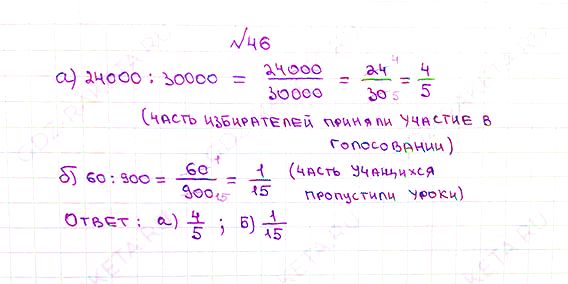 №46
а) 24000 : 30000 = 24000/30000 = 24⁴/30₅ = 4/5
(часть избирателей приняли участие в
голосовании)
б) 60 : 900 = 60¹/900₁₅ = 1/15 (часть учащихся
пропустили уроки)
Ответ: а) 4/5 ; б) 1/15